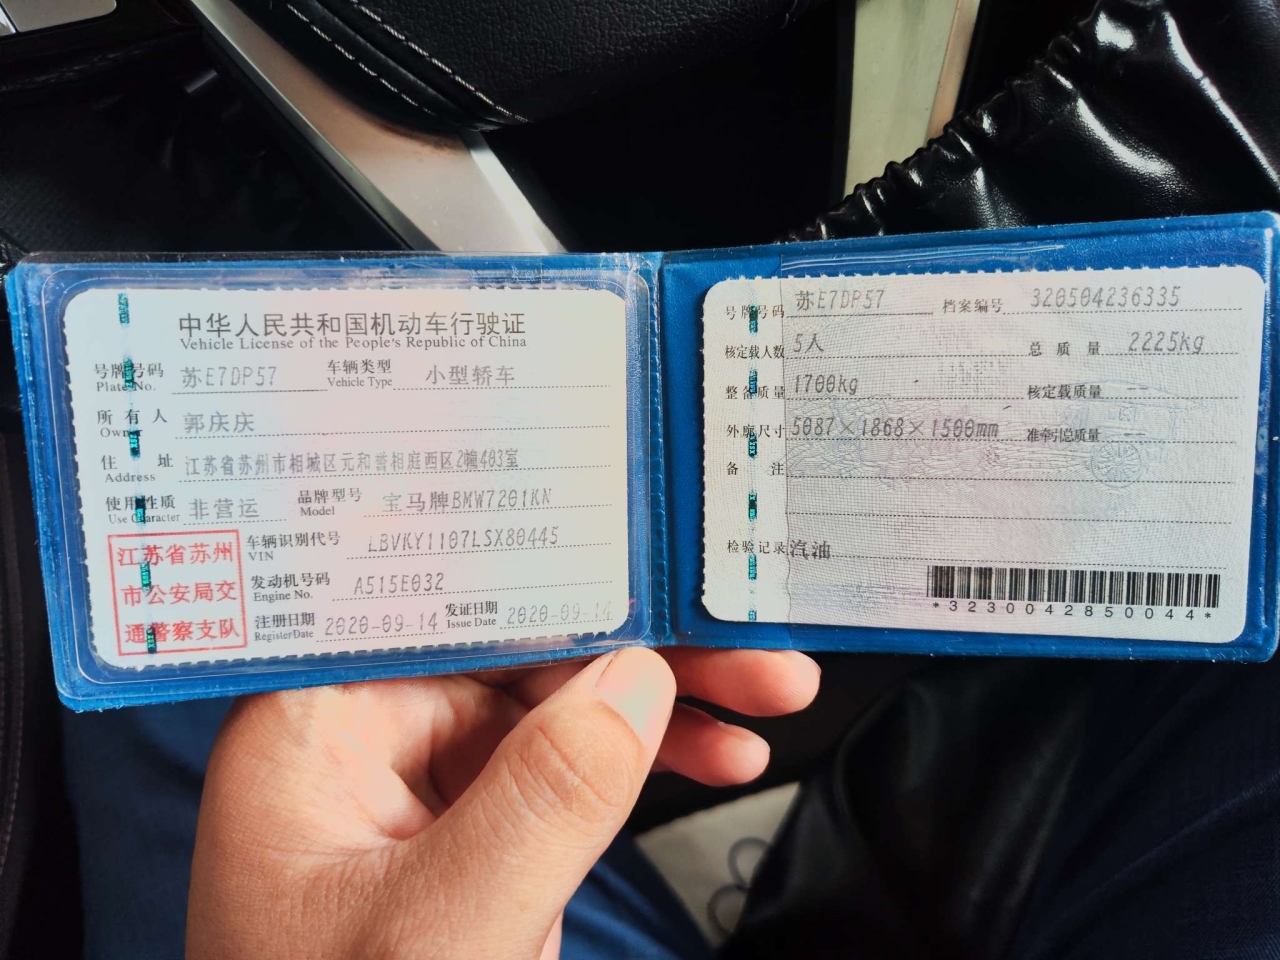 中华人民共和国机动车行驶证
Vehicle License of the People's Republic of China
号牌号码 苏E7DP57 车辆类型 小型轿车
Plate No. Vehicle Type
所有人 郭庆庆
Owner
住址 江苏省苏州市相城区元和誉相庭西区2幢403室
Address
使用性质 非营运 品牌型号 宝马牌BMW7201KN
Use Character Model
江苏省苏州
市公安局交
通警察支队
车辆识别代号 LBVKY1107LSX80445
VIN
发动机号码 A515E032
Engine No.
注册日期 2020-09-14 发证日期 2020-09-14
Register Date Issue Date
号牌号码 苏E7DP57 档案编号 320504236335
核定载人数 5人 总质量 2225kg
整备质量 1700kg 核定载质量 --
外廓尺寸 5087×1868×1500mm 准牵引总质量 --
备注
检验记录 汽油
*3230042850044*